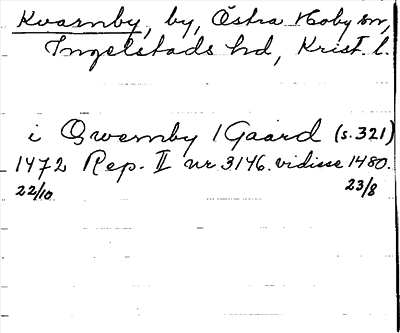 Kvarnby, by, Östra Hoby sn,
Ingelstads hd, Krist. l.
i Qwernby 1 Gaard (s. 321)
1472 Rep. II nr 3146. vidisse 1480.
22/10 23/8